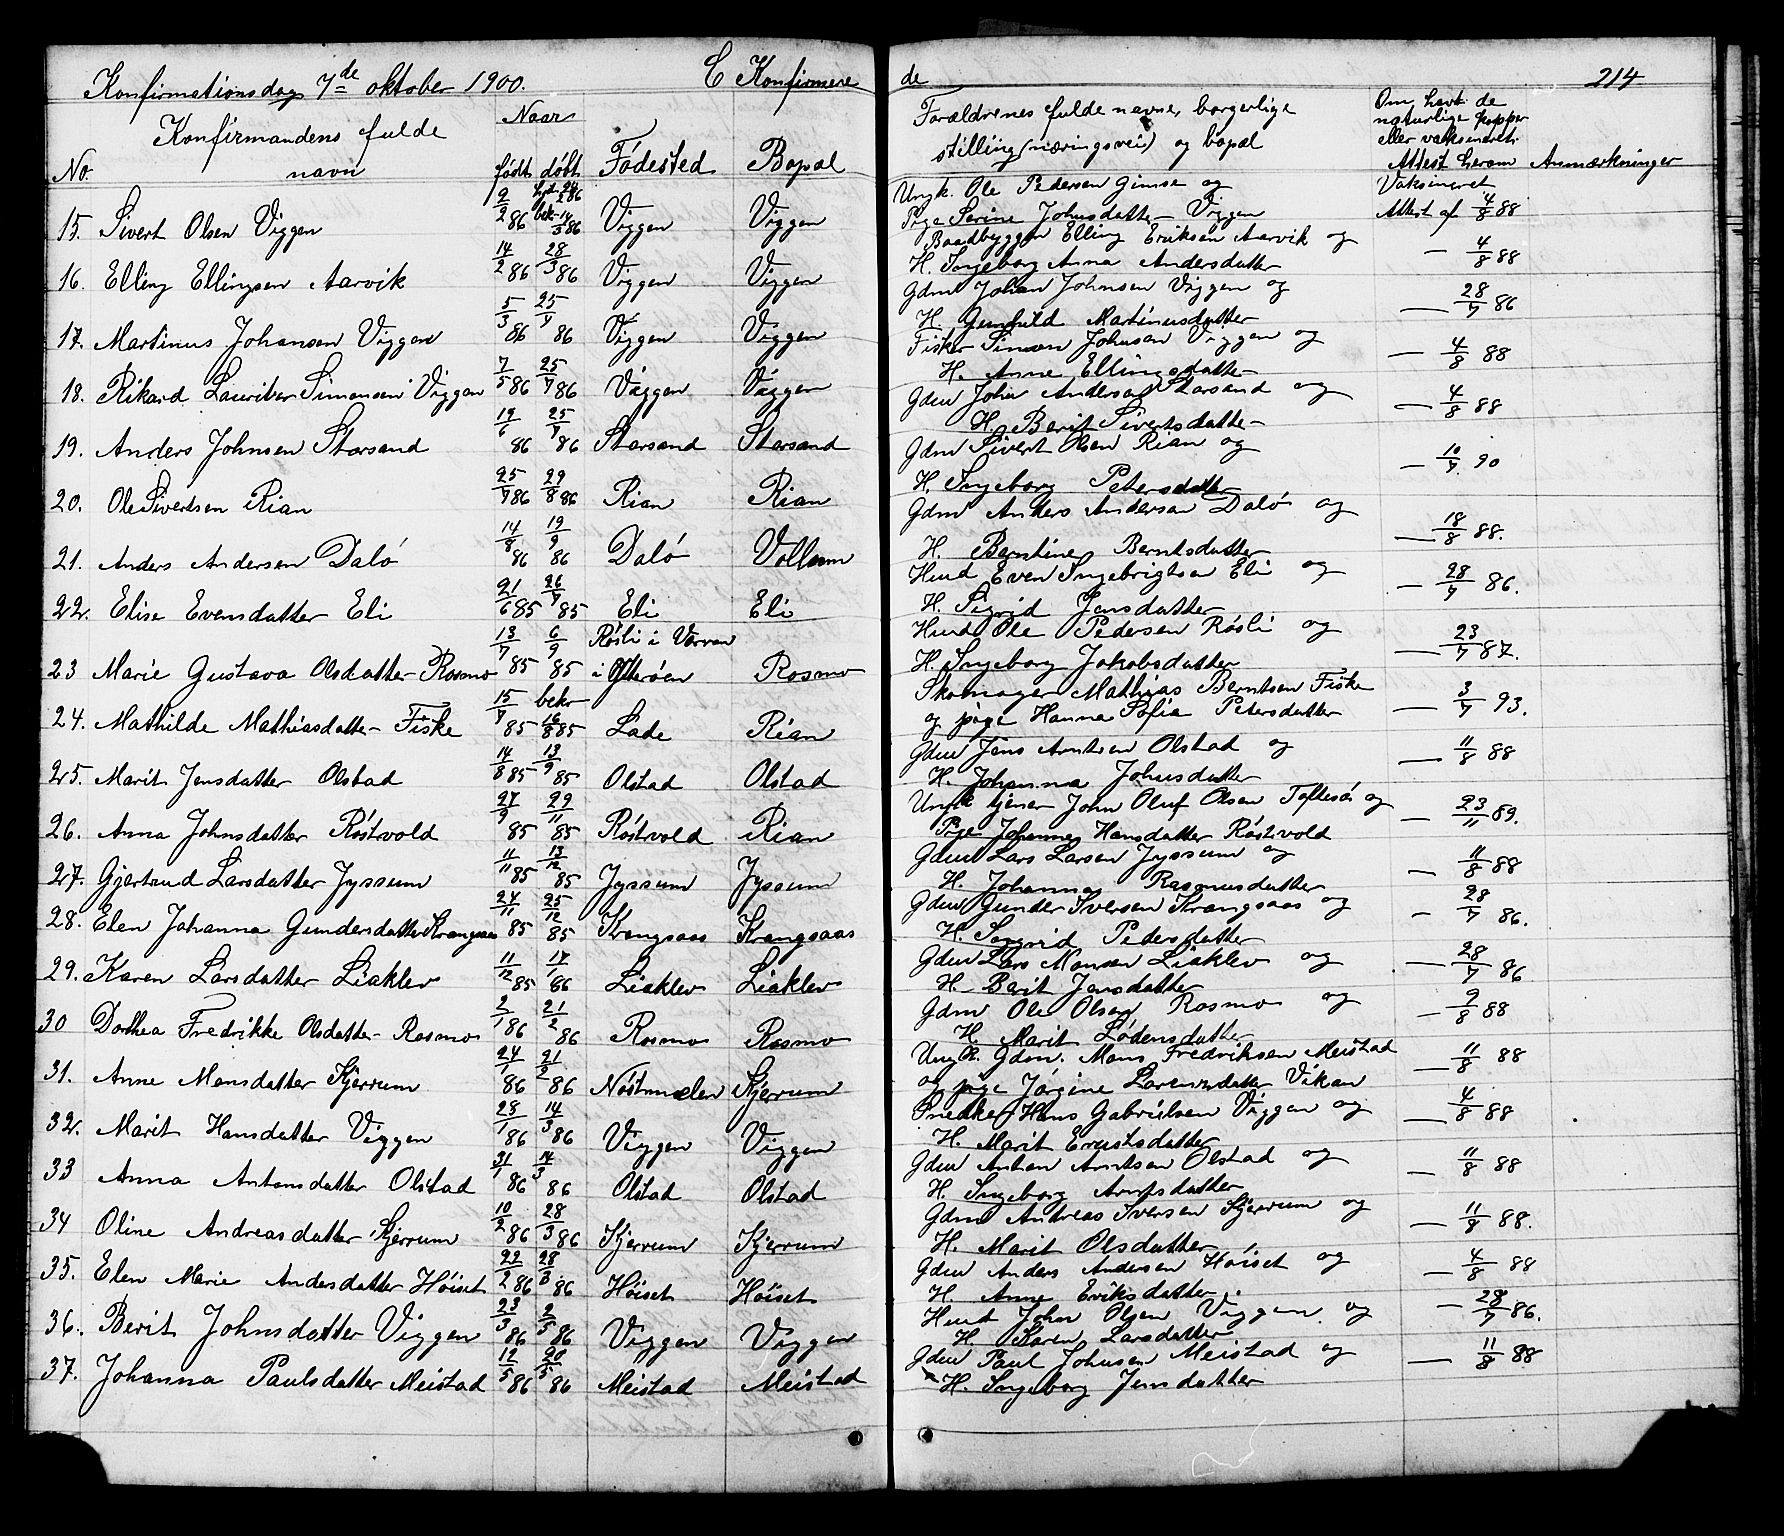 Konfirmationsdag 7de oktober 1900. C Konfirmere de 214
No. Konfirmandens fulde navn Naar født døbt Fødested Bopæl Forældrenes fulde navne, borgerlige stilling (næringsvei) og bopæl Om havt de naturlige kopper eller vaksineret. Attest herom Anmærkninger
15. Sivert Olsen Viggen 9/2 86 24/2 86 bek. 14/3 86 Viggen Viggen Ungk. Ole Pedersen Gimse og Vaksineret
Pige Serine Johnsdatter Viggen Attest af 4/8 88
16. Elling Ellingsen Aarvik 14/2 86 28/3 86 Viggen Viggen Baadbygger Elling Eriksen Aarvik og — 4/8 88
H. Ingeborg Anna Andersdatter
17. Martinus Johansen Viggen 5/3 86 25/7 86 Viggen Viggen Gdm Johan Johnsen Viggen og — 28/7 86
H. Gunhild Martinusdatter
18. Rikard Lauritz Simonsen Viggen 7/5 86 25/7 86 Viggen Viggen Fisker Simon Johnsen Viggen og — 4/8 88
H. Anne Ellingsdatter
19. Anders Johnsen Storsand 19/6 86 25/7 86 Storsand Storsand Gdm John Andersen Storsand og — 4/8 88
H. Berit Sivertsdatter
20. Ole Sivertsen Rian 25/7 86 29/8 86 Rian Rian Gdm Sivert Olsen Rian og — 10/7 90
H. Ingeborg Petersdatter
21. Anders Andersen Dalø 14/8 86 19/9 86 Dalø Vollum Gdm Anders Andersen Dalø og — 18/8 88.
H. Berntine Berntsdatter
22. Elise Evensdatter Eli 21/6 85 26/7 85 Eli Eli Husd Even Ingebrigtsen Eli og — 28/7 86.
H. Sigrid Jensdatter
23 Marie Gustava Olsdatter Rosmo 13/7 85 6/9 85 Røsli i Værran i Ytterøen Rosmo Husd Ole Pedersen Røsli og — 23/7 87.
H. Ingeborg Jakobsdatter
24. Mathilde Mathiasdatter Fiske 15/7 85 bekr 16/8 85 Lade Rian Skomager Mathias Berntsen Fiske — 3/7 93.
og pige Hanna Sofia Petersdatter
25. Marit Jensdatter Olstad 14/8 85 13/9 85 Olstad Olstad Gdm Jens Arntsen Olstad og — 11/8 88
H. Johanna Johnsdatter
26. Anna Johnsdatter Røstvold 27/9 85 29/11 85 Røstvold Rian Ungk tjener John Oluf Olsen Toftesø og — 23/11 89.
Pige Johanna Hansdatter Røstvold
27. Gjertrud Larsdatter Jyssum 11/11 85 13/12 85 Jyssum Jyssum Gdm Lars Larsen Jyssum og — 11/8 88
H. Johanna Rasmusdatter
28. Elen Johanna Gundersdatter Krangsaas 24/11 85 25/12 85 Krangsaas Krangsaas Gdm Gunder Iversen Krangsaas og — 28/7 86.
H. Sigrid Pedersdatter
29. Karen Larsdatter Liaklev 11/12 85 17/1 86 Liaklev Liaklev Gdm Lars Monsen Liaklev og — 28/7 86
H. Berit Jensdatter
30 Dorthea Fredrikke Olsdatter Rosmo 2/1 86 21/2 86 Rosmo Rosmo Gdm Ole Olsen Rosmo og — 9/8 88
H. Marit Lødensdatter
31. Anne Monsdatter Skjerrum 24/1 86 21/2 86 Nøstmelen Skjerrum Ungk. Gdm. Mons Fredriksen Meistad — 11/8 88
og pige Jørgine Lorentsdatter Vikan
32. Marit Hansdatter Viggen 28/1 86 14/3 86 Viggen Viggen Snedker Hans Gabrielsen Viggen og — 4/8 88
H. Marit Ernstsdatter
33 Anna Antonsdatter Olstad 31/1 86 14/3 86 Olstad Olstad Gdm Anton Arntsen Olstad og — 11/8 88
H. Ingeborg Arntsdatter
34 Oline Andreasdatter Skjerrum 10/2 86 28/3 86 Skjerrum Skjerrum Gdm Andreas Iversen Skjerrum og — 11/8 88.
H. Marit Olsdatter
35. Elen Marie Andersdatter Høiset 22/2 86 28/3 86 Høiset Høiset Gdm Anders Andersen Høiset og — 4/8 88
H. Anne Eriksdatter.
36. Berit Johnsdatter Viggen 23/3 86 2/5 86 Viggen Viggen Husd John Olsen Viggen og — 28/7 86.
H. Karen Larsdatter
37. Johanna Paulsdatter Meistad 12/5 86 20/5 86 Meistad Meistad Gdm Paul Johnsen Meistad og — 11/8 88
H. Ingeborg Jensdatter